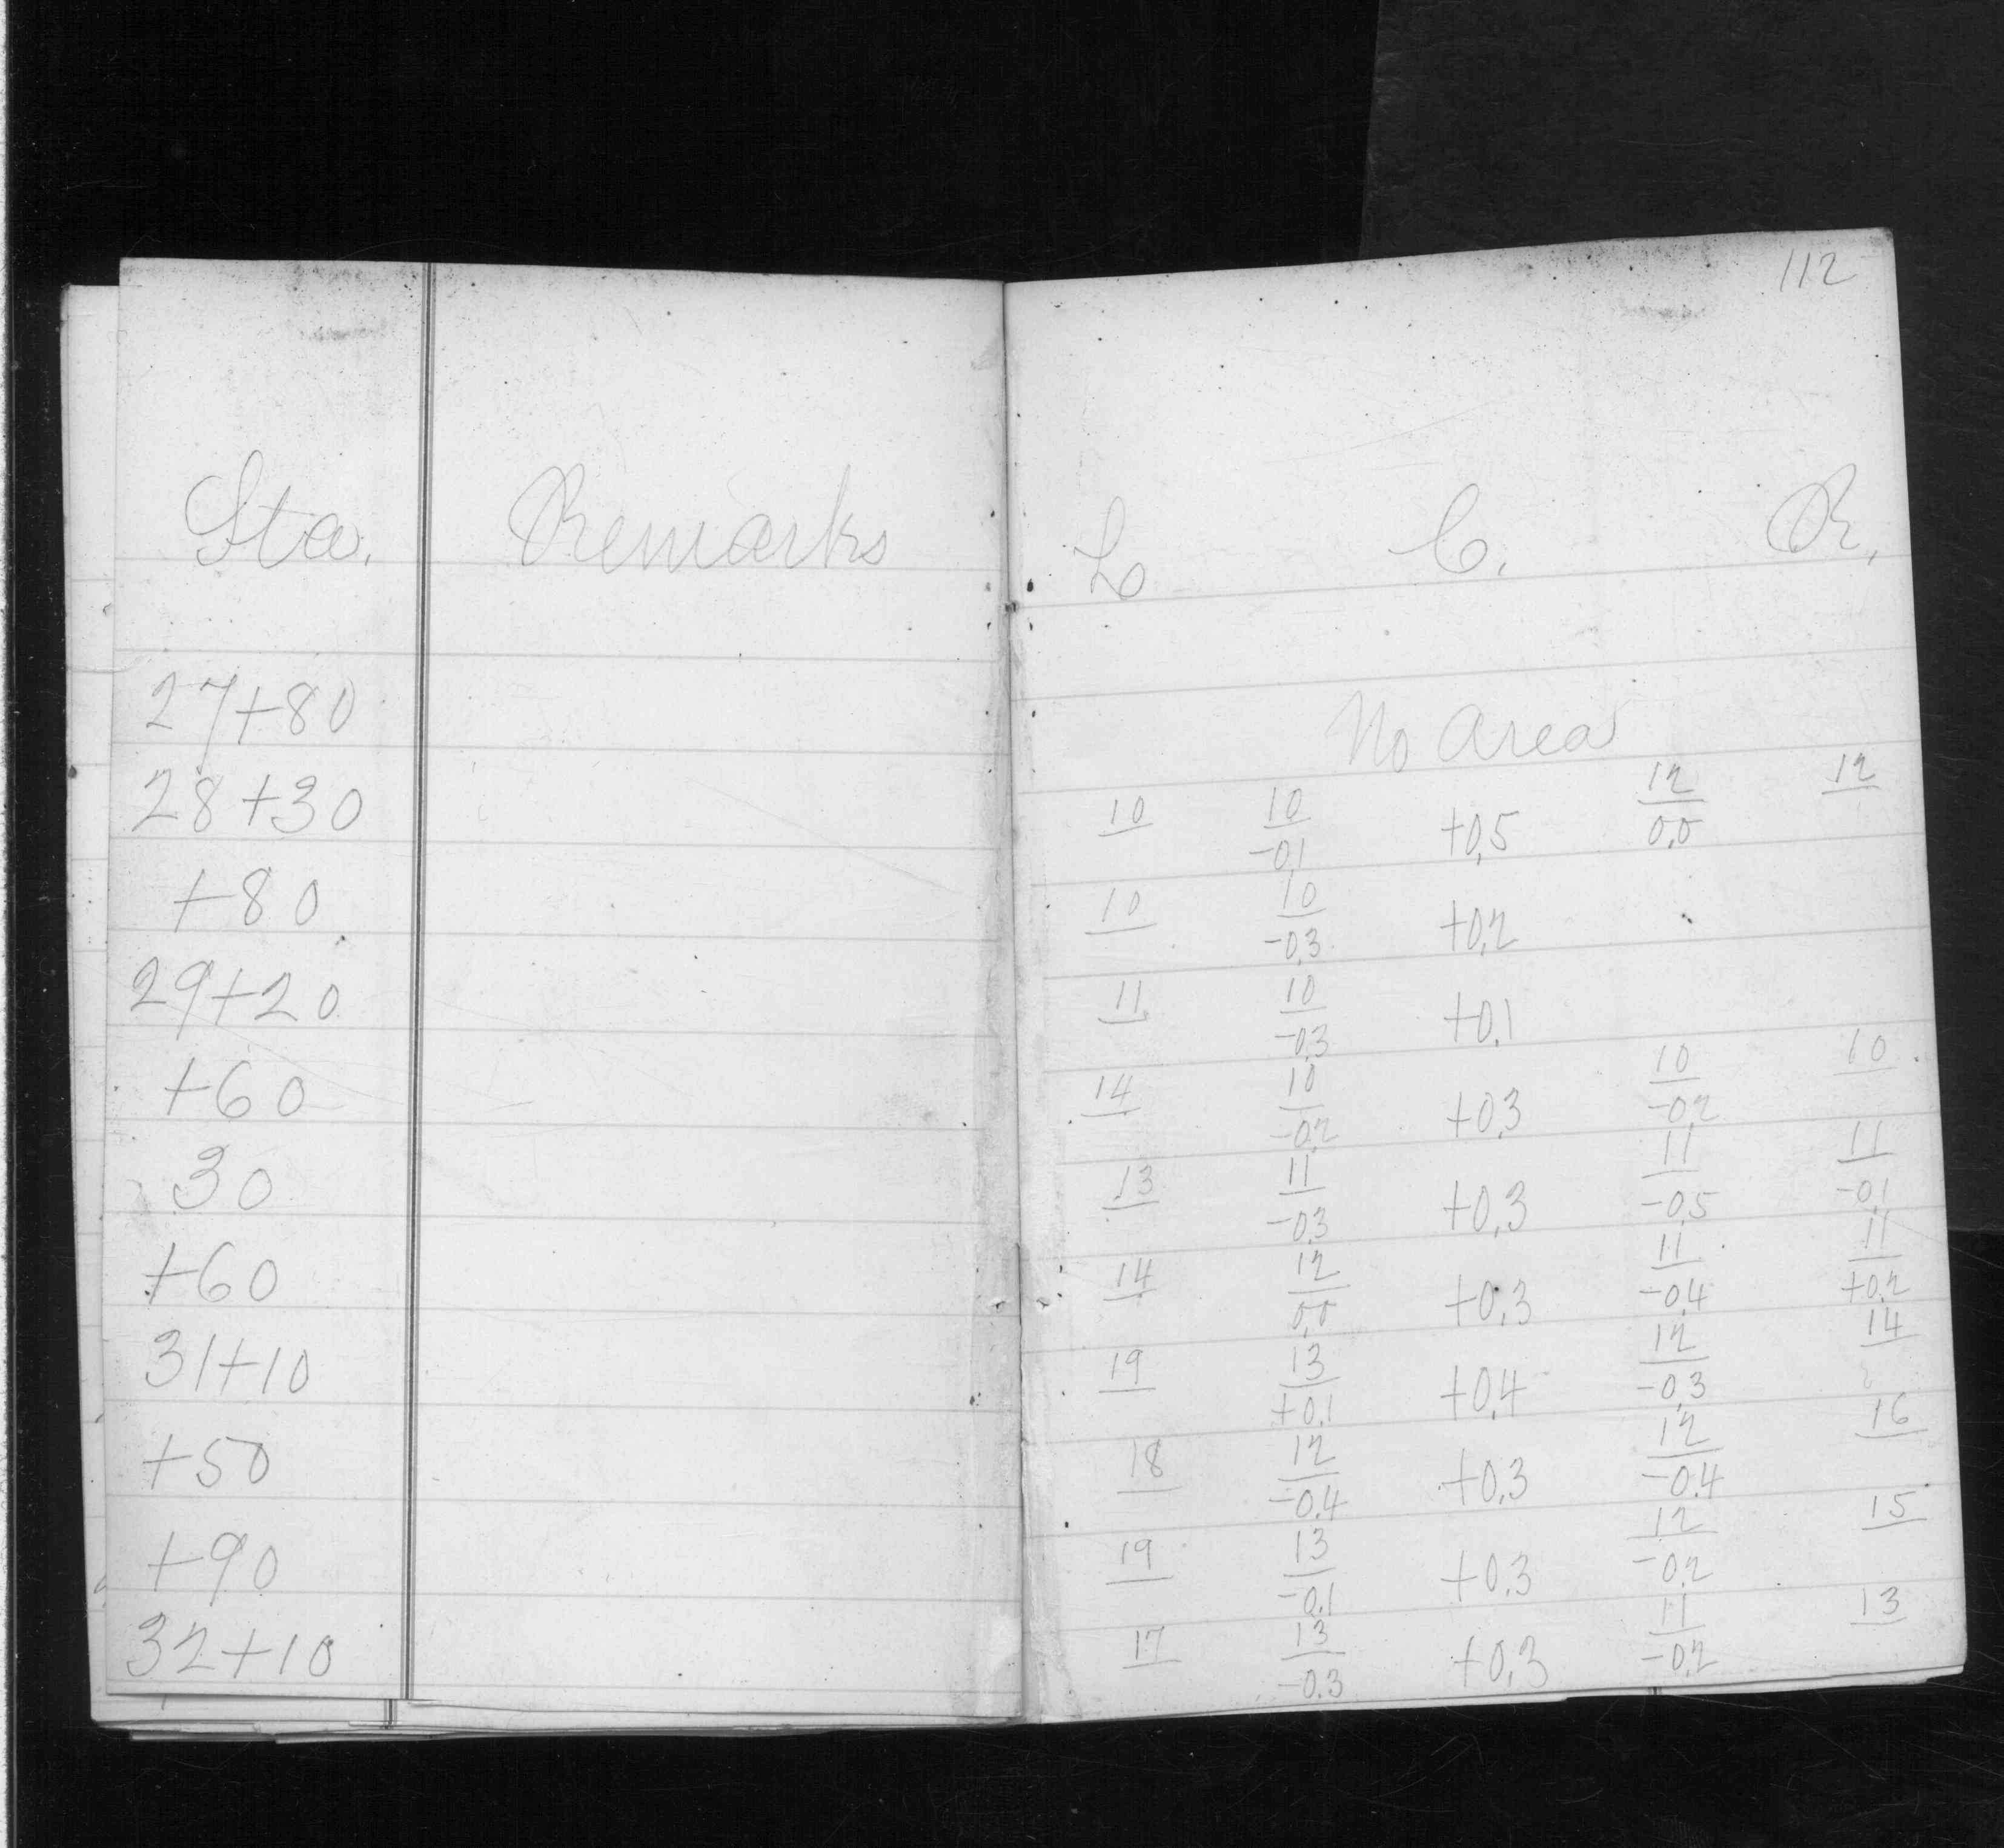 112
Sta. Remarks L C. R.
27+80 No Area
28+30 10 10/-0.1 +0.5 12/0.0 12
+80 10 10/-0.3 +0.2
29+20 11 10/-0.3 +0.1
+60 14 10/-0.2 +0.3 10/-0.2 10
30 13 11/-0.3 +0.3 11/-0.5 11/-0.1
+60 14 12/0.0 +0.3 11/-0.4 11/+0.2
31+10 19 13/+0.1 +0.4 12/-0.3 14
+50 18 12/-0.4 +0.3 12/-0.4 16
+90 19 13/-0.1 +0.3 12/-0.2 15
32+10 17 13/-0.3 +0.3 11/-0.2 13